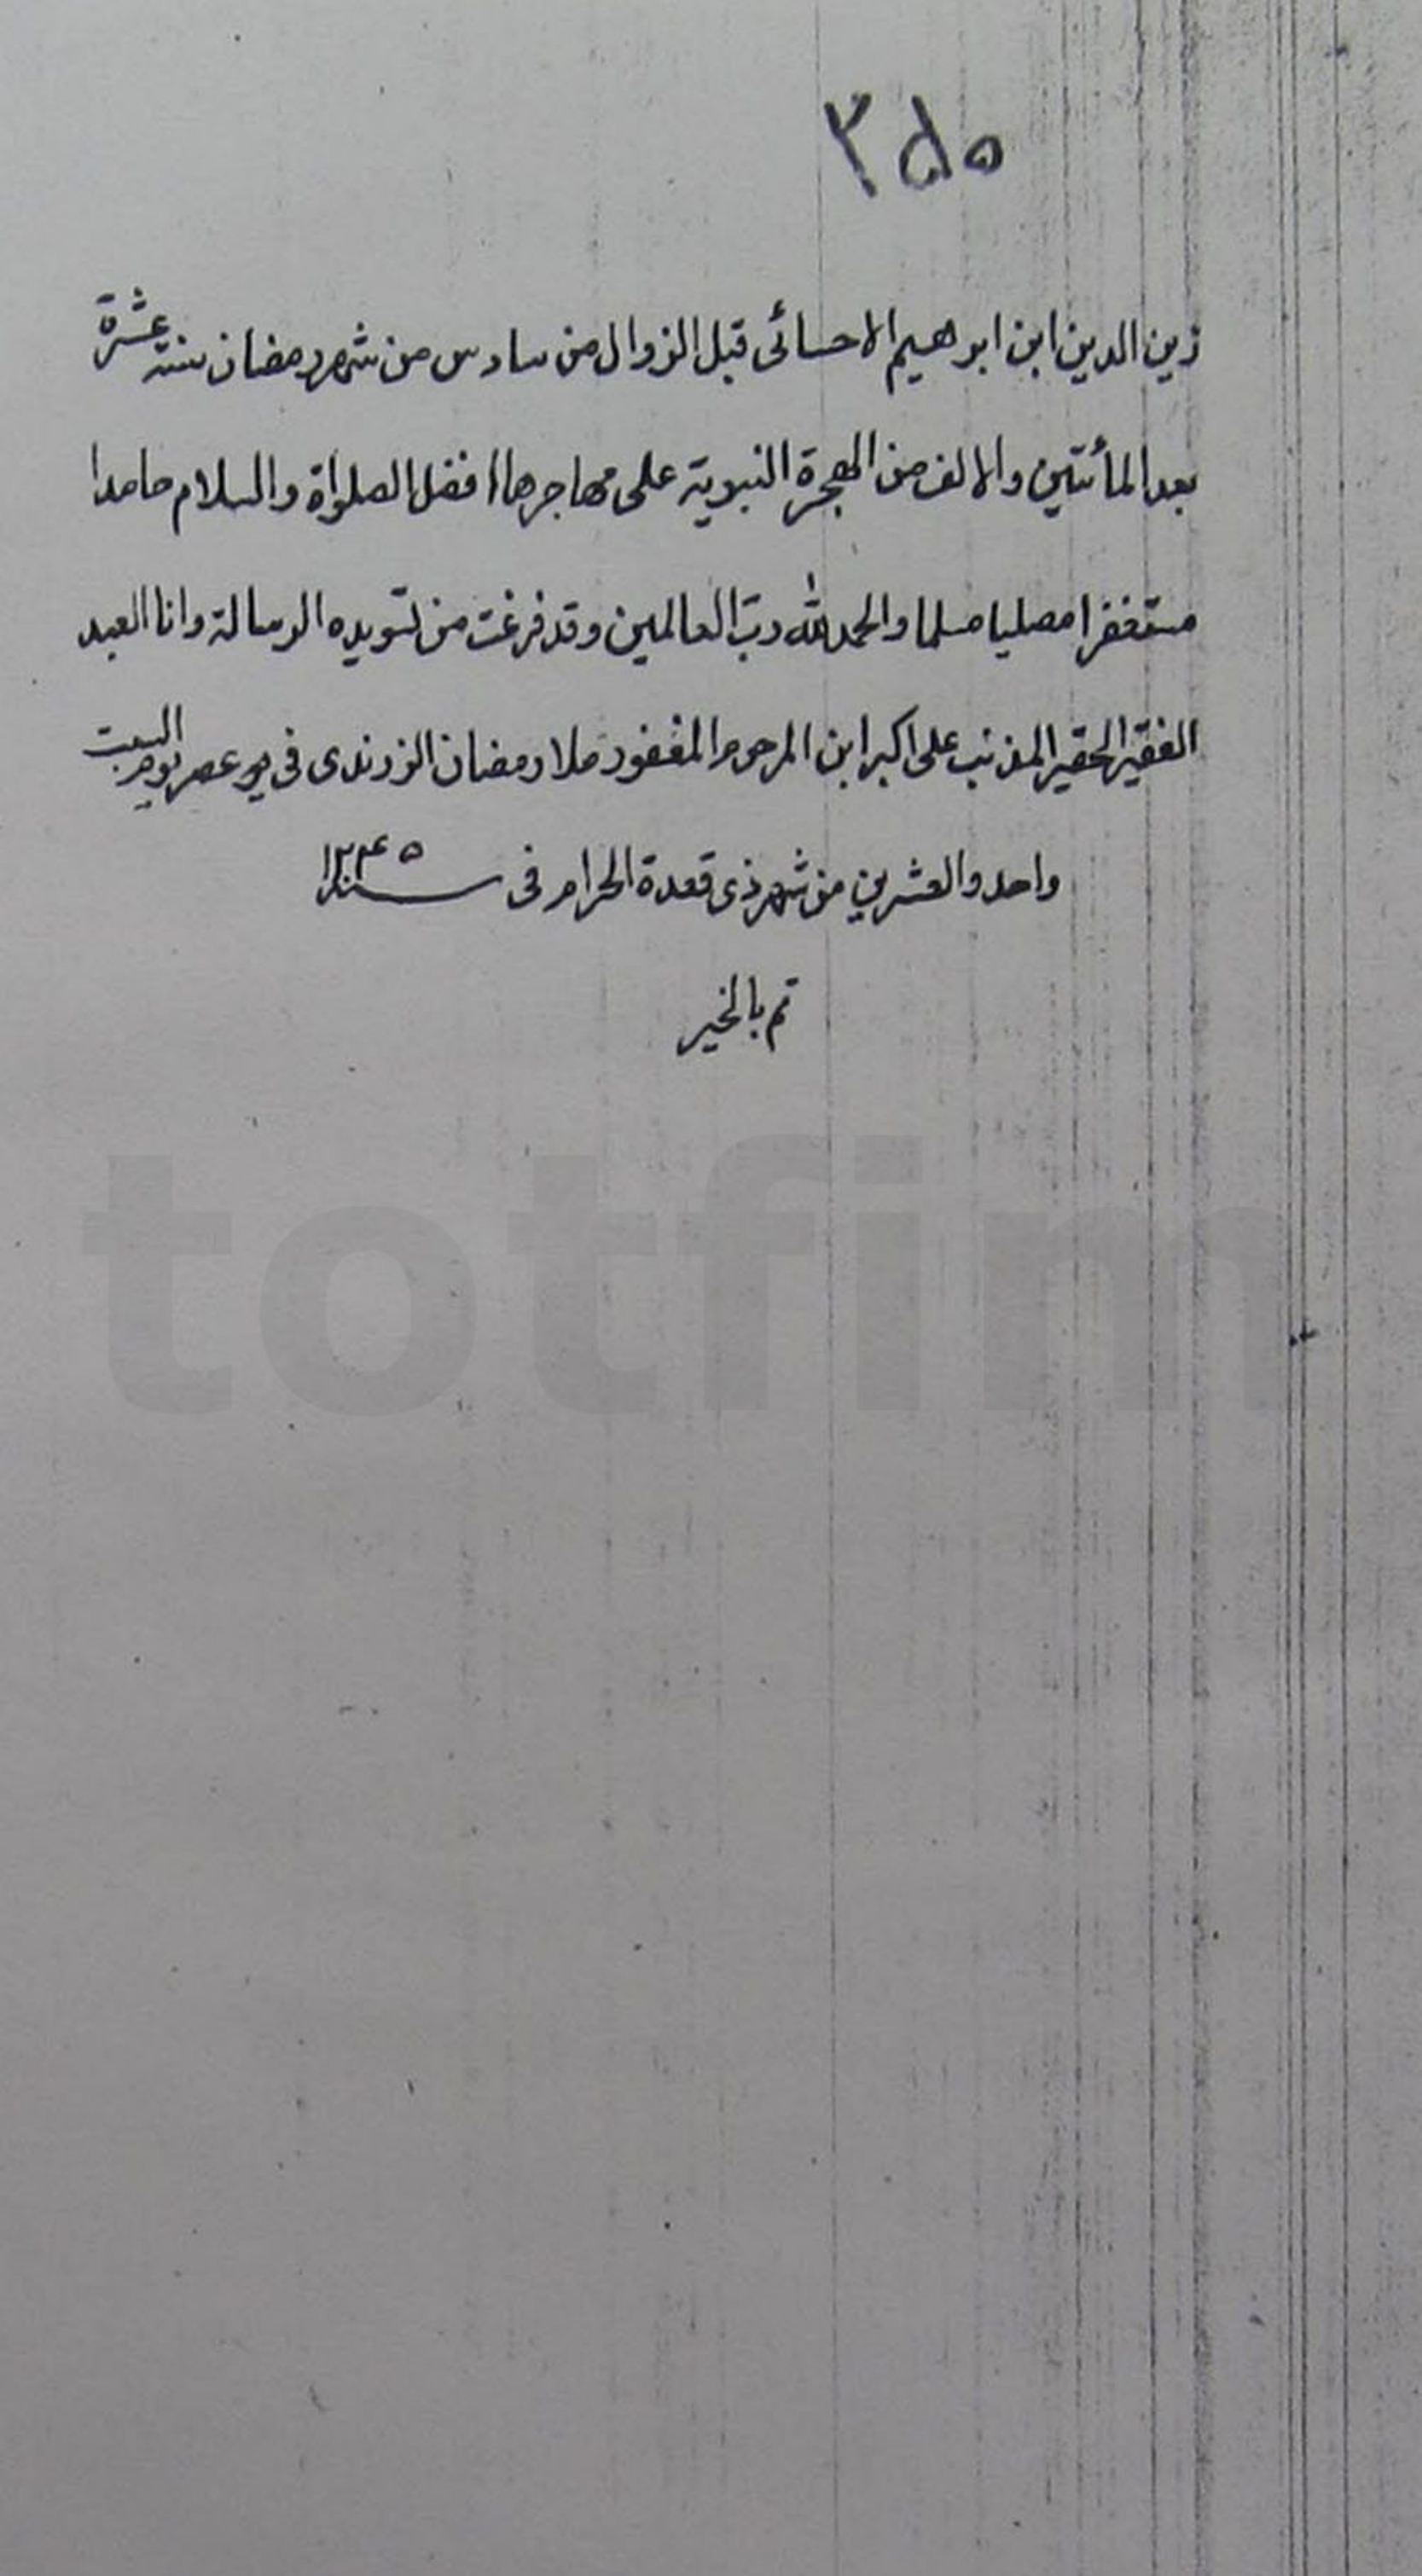 ۲۵۰
زين الدين ابن ابرهيم الاحسائى قبل الزوال من سادس من شهر رمضان سنة عشرة
بعد المأتين والالف من الهجرة النبوية على مهاجرها افضل الصلواة والسلام حامدا
مستغفرا مصليا مسلما والحمد لله ربّ العالمين وقد فرغت من تسويده الرسالة وانا العبد
الفقير الحقير المذنب على اكبر ابن المرحوم المغفور ملا رمضان الزرندى فى يو عصر يوم السبت
واحد والعشرين من شهر ذى قعدة الحرام فى سنة ۱۲۴۵
تم بالخير
totfim